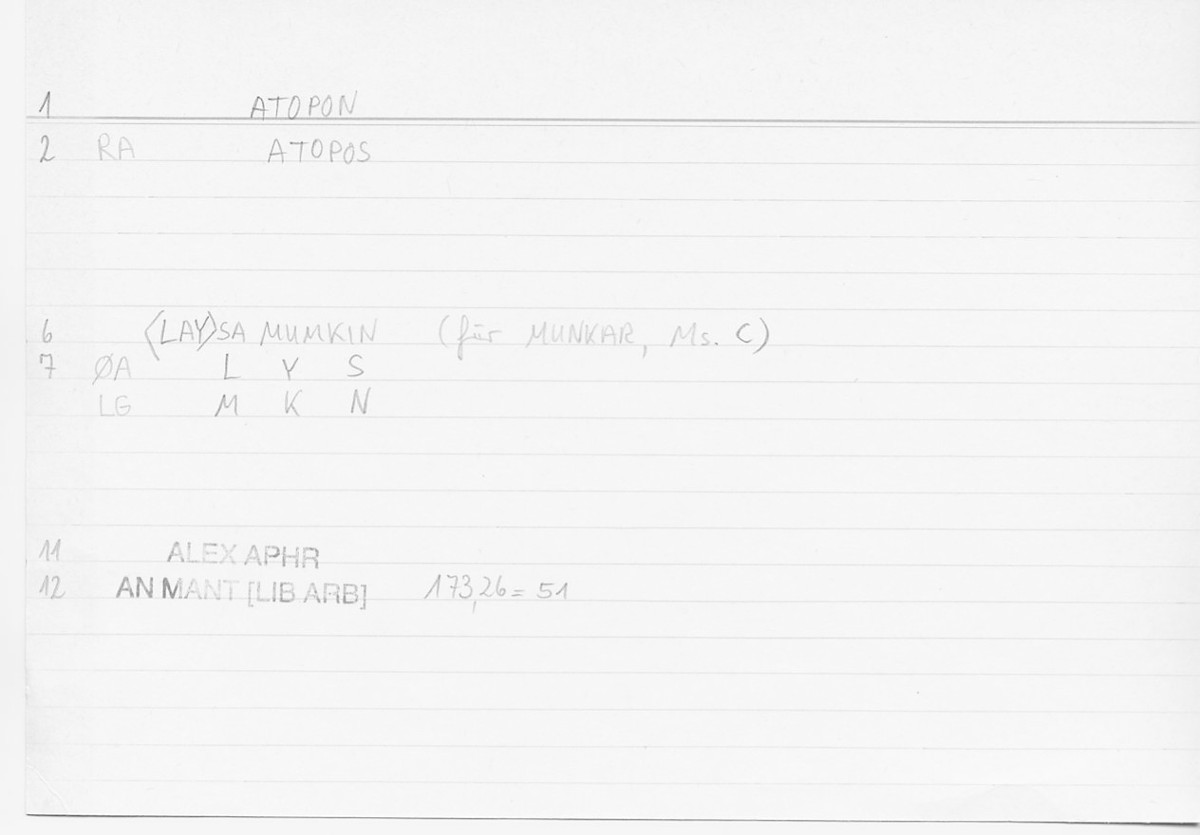 1 ATOPON
2 RA ATOPOS
6 ⟨LAY⟩SA MUMKIN (für MUNKAR, Ms. C)
7 ØA L Y S
LG M K N
11 ALEX APHR
12 AN MANT [LIB ARB] 173,26 = 51